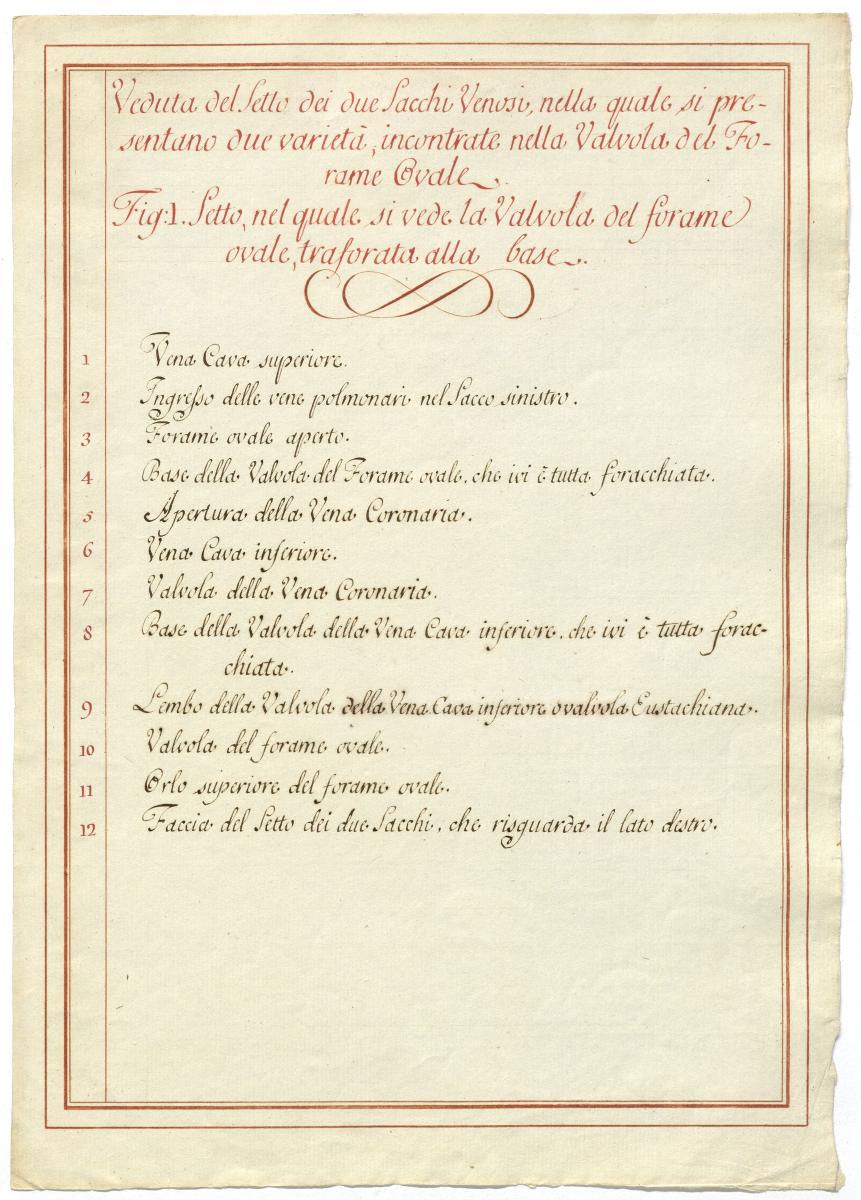 Veduta del Setto dei due Sacchi Venosi, nella quale si pre-
sentano due varietà, incontrate nella Valvola del Fo-
rame Ovale.
Fig: 1. Setto, nel quale si vede la Valvola del forame
ovale, traforata alla base.
1 Vena Cava superiore.
2 Ingresso delle vene polmonari nel Sacco sinistro.
3 Forame ovale aperto.
4 Base della Valvola del Forame ovale, che ivi è tutta foracchiata.
5 Apertura della Vena Coronaria.
6 Vena Cava inferiore.
7 Valvola della Vena Coronaria.
8 Base della Valvola della Vena Cava inferiore, che ivi è tutta forac-
chiata.
9 Lembo della Valvola della Vena Cava inferiore o valvola Eustachiana.
10 Valvola del forame ovale.
11 Orlo superiore del forame ovale.
12 Faccia del Setto dei due Sacchi, che risguarda il lato destro.